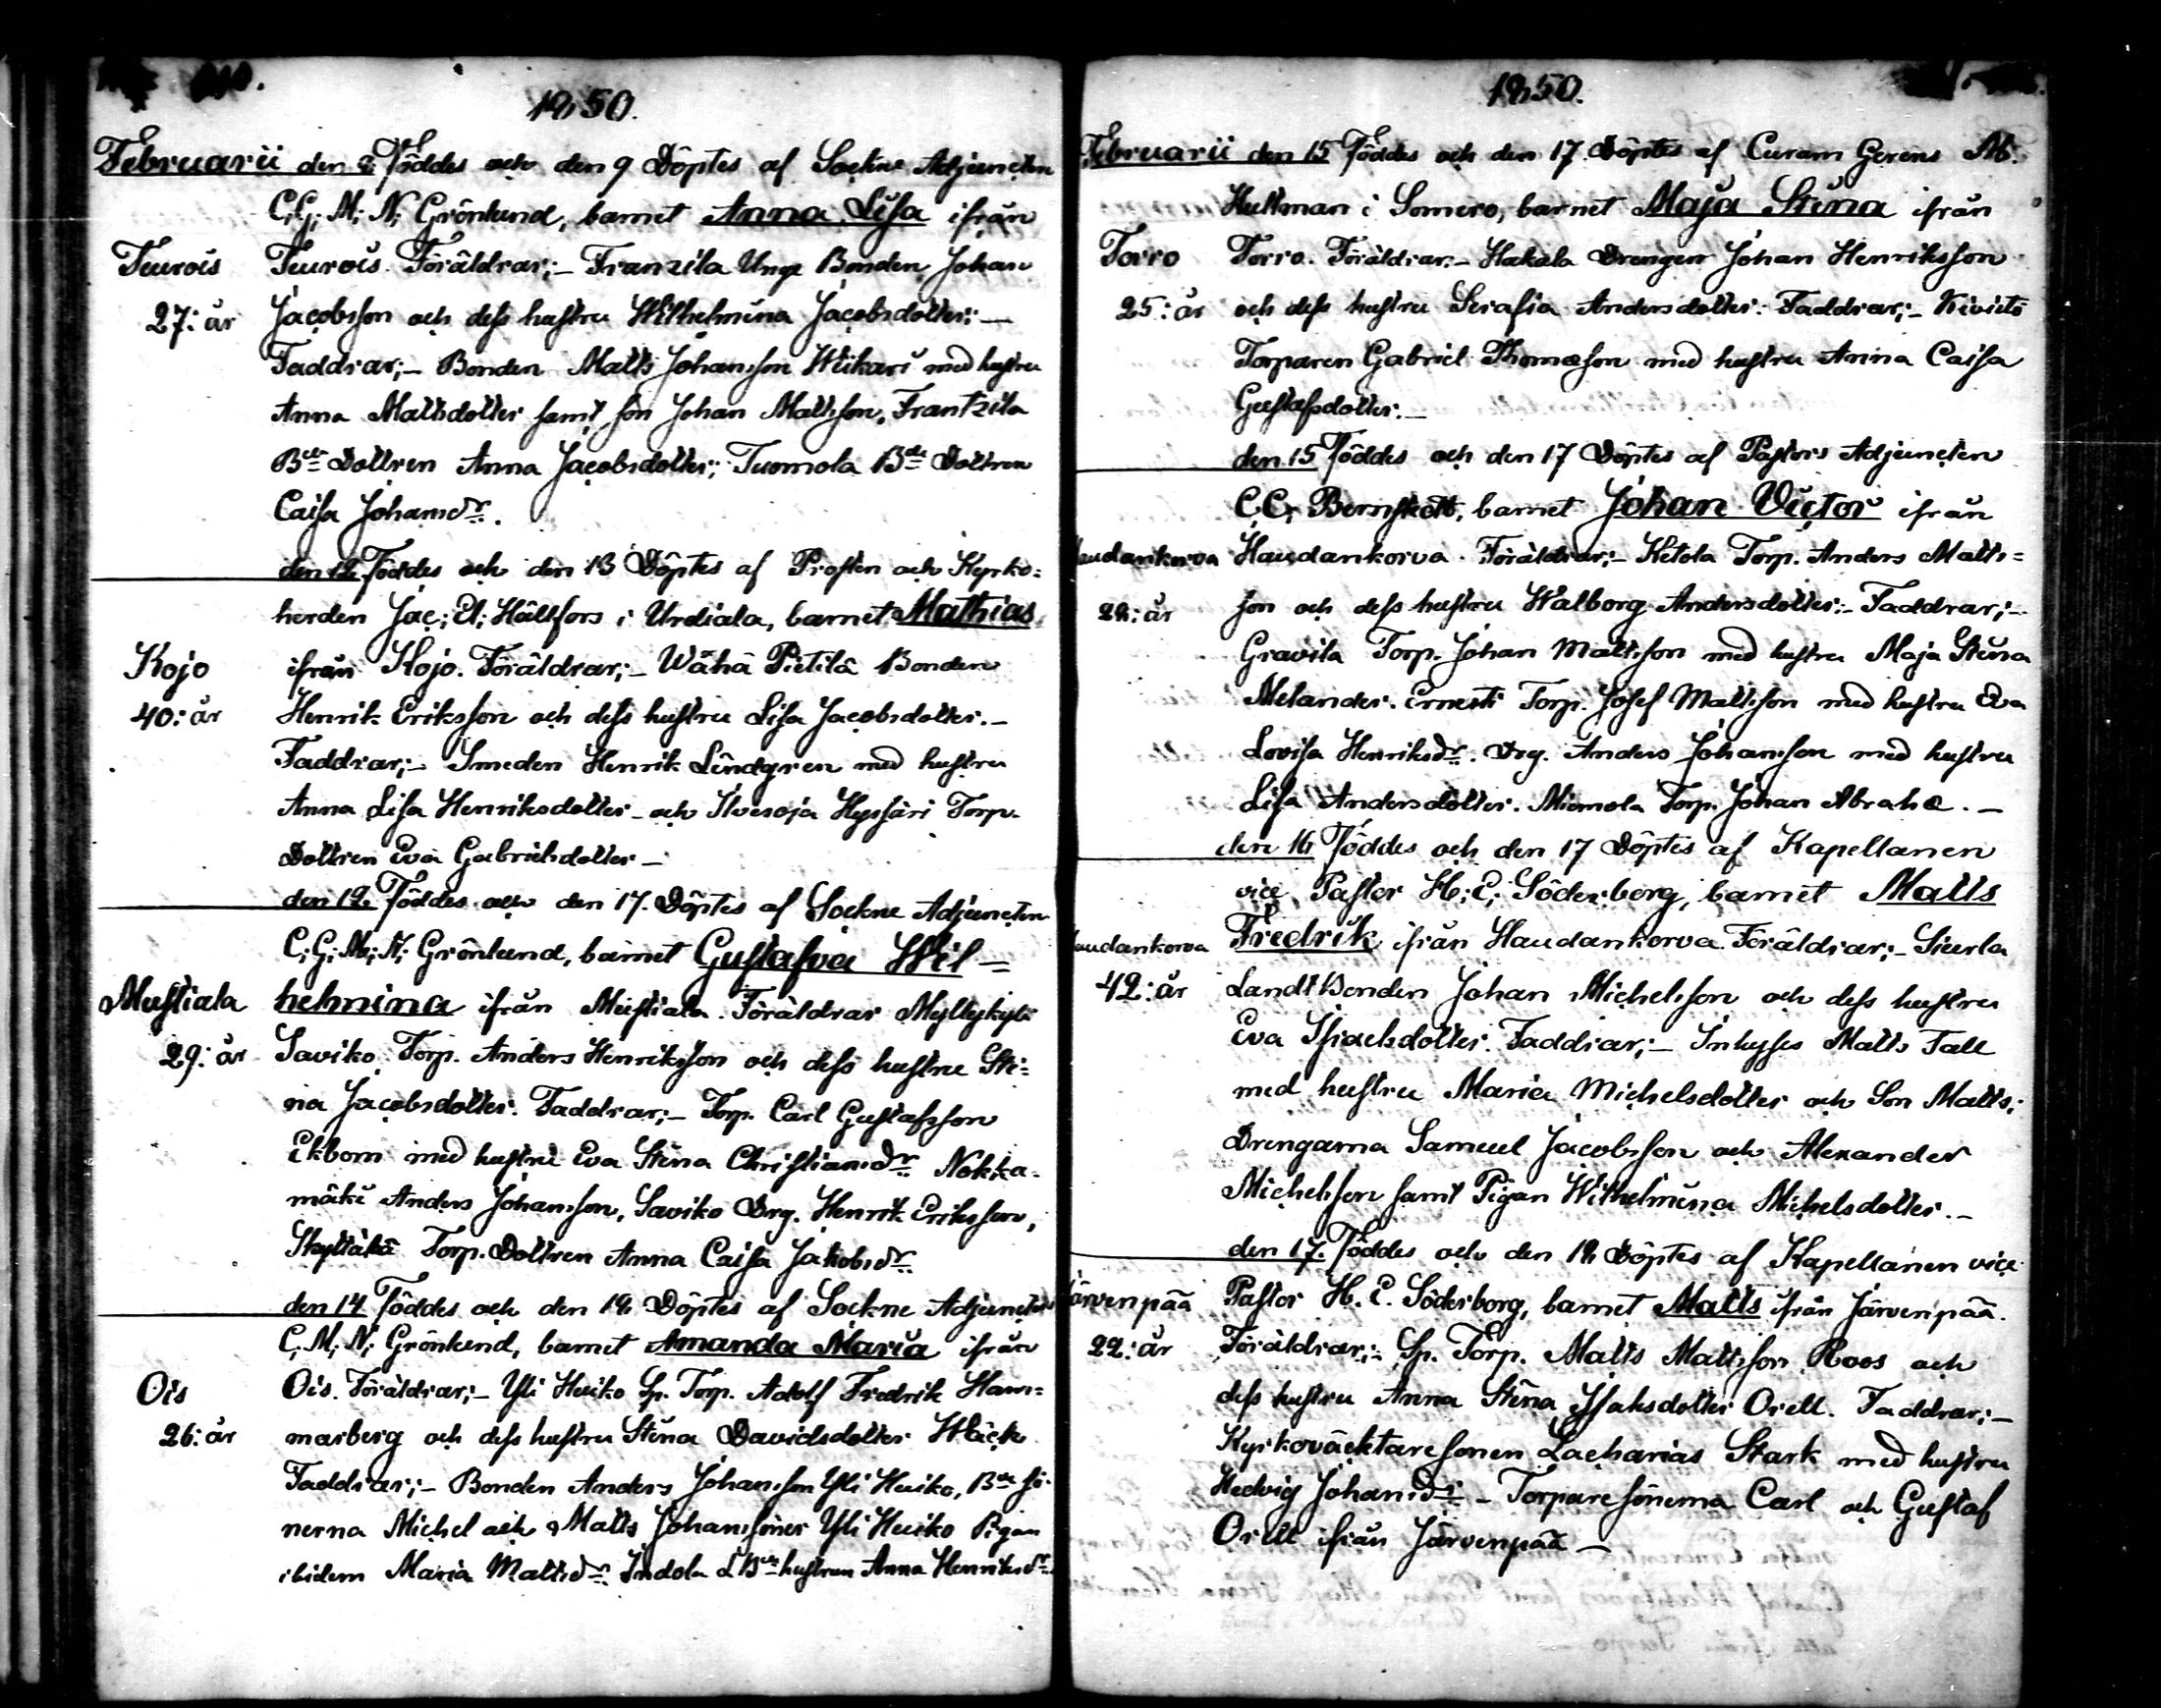 1850.
Februarii den 8 Föddes och den 9 Döptes af Sockne Adjuncten
C; G; M; N; Grönlund, barnet Anna Lisa ifrån
Teurois Teurois. Föräldrar;- Franzila Unge Bonden Johan
27: år Jacobsson och dess hustru Wilhelmina Jacobsdotter:-
Faddrar;- Bonden Matts Johansson Wiikari med hustru
Anna Mattsdotter samt son Johan Mattsson, Frantzila
Bde Dottren Anna Jacobsdotter; Tuomola Bde Dottren
Caisa Johansdr.
den 12 Föddes och den 13 Döptes af Prosten och Kyrko=
herden Jac; U; Hällfors i Urdiala, barnet Mathias
Kojo ifrån Kojo. Föräldrar;- Wähä Pietilä Bonden
40: år Henrik Eriksson och dess hustru Lisa Jacobsdotter.-
Faddrar;- Smeden Henrik Lindgren med hustru
Anna Lisa Henriksdotter- och Ilvesoja Torp.
Dottren Eva Gabrielsdotter-
den 12 Föddes och den 17. Döptes af Sockne Adjuncten
C; G; M; N; Grönlund, barnet Gustafva Wil=
Mustiala helmina ifrån Mustiala. Föräldrar Myllykylä
29: år Saviko Torp. Anders Henriksson och dess hustru Sti=
na Jacobsdotter. Faddrar;- Torp. Carl Gustafsson
Ekbom med hustru Eva Stina Christiansdr Nokka=
mäki Anders Johansson, Saviko Drg. Henrik Eriksson,
Torp. Dottren Anna Caisa Jakobsdr
den 14 Föddes och den 18 Döptes af Sockne Adjuncten
C; M; N; Grönlund, barnet Amanda Maria ifrån
Ois Ois. Föräldrar;- Yli Huiko Sp. Torp. Adolf Fredrik Ham=
26: år marberg och dess hustru Stina Davidsdotter Wäck
Faddrar;- Bonden Anders Johansson Yli Huiko, Bde Sö=
nerna Michel och Matts Johanssöner Yli Huiko Pigan
ibidem Maria Mattsdr Indola LBde hustrun Anna Henriksdr
1850.
Februarii den 15 Föddes och den 17. Döptes af Curam Gerens M.
Hultman i Somero, barnet Maja Stina ifrån
Torro Torro. Föräldrar.- Hakala Drengen Johan Henriksson
25: år och dess hustru Serafia Andersdotter. Faddrar;- Kivistö
Torparen Gabriel Thomasson med hustru Anna Caisa
Gustafsdotter.-
den 15 Föddes och den 17 Döptes af Pastors Adjuncten
C; C; Bernstedt, barnet Johan Victor ifrån
Haudankorva Haudankorva. Föräldrar;- Ketola Torp. Anders Matts=
28: år son och dess hustru Walborg Andersdotter.- Faddrar;-
Gravila Torp. Johan Mattsson med hustru Maja Stina
Melander. Ernesti Torp. Josef Mattsson med hustru Eva
Lovisa Henriksdr. Drg. Anders Johansson med hustru
Lisa Andersdotter. Miemola Torp. Johan Abraha.-
den 16 Föddes och den 17 Döptes af Kapellanen
vice Pastor H; E; Söderborg, barnet Matts
Haudankorva Fredrik ifrån Haudankorva. Föräldrar;- Siurla
42: år Landt Bonden Johan Michelsson och dess hustru
Eva Isiachsdotter. Faddrar;- Inhyses Matts Tall
med hustru Maria Michelsdotter och Son Matts;
Drengarna Samuel Jacobsson och Alexander
Michelsson samt Pigan Wilhelmina Michelsdotter.-
den 17. Föddes och den 18 Döptes af Kapellanen vice
Järvenpää Pastor H. E. Söderborg, barnet Matts ifrån Järvenpää.
22: år Föräldrar;- Sp. Torp. Matts Mattsson Roos och
dess hustru Anna Stina Isaksdotter Orell. Faddrar;-
Kyrkoväcktaresonen Zacharias Stark med hustru
Hedvig Johansdr- Torparesönerna Carl och Gustaf
Orell ifrån Järvenpää-